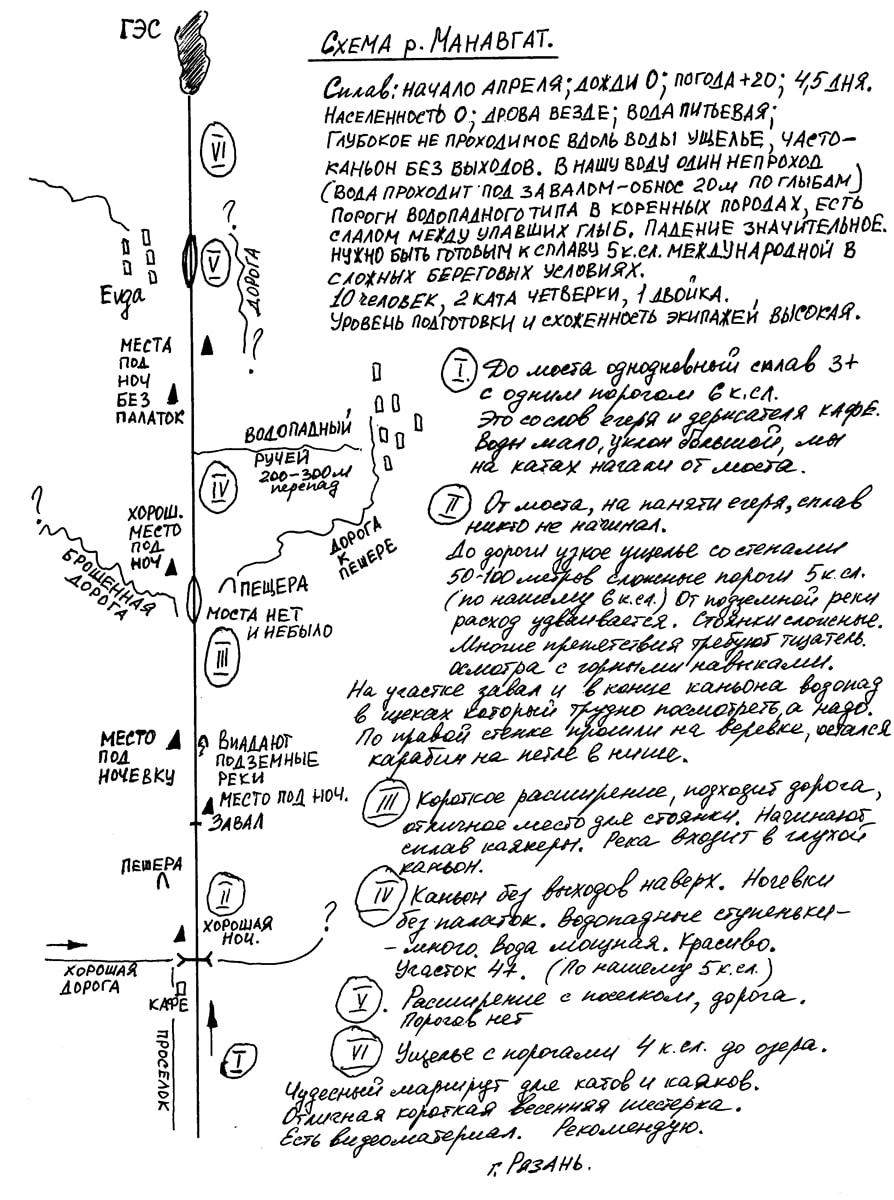 ГЭС
Схема р. Манавгат.
Сплав: начало апреля; дожди 0; погода +20; 4,5 дня.
Населенность 0; дрова везде; вода питьевая;
Глубокое не проходимое вдоль воды ущелье, часто-
каньон без выходов. В нашу воду один непроход
(вода проходит под завалом - обнос 20м по глыбам)
Пороги водопадного типа в коренных породах, есть
слалом между упавших глыб. Падение значительное.
Нужно быть готовым к сплаву 5 к.сл. международной в
сложных береговых условиях.
10 человек, 2 ката четверки, 1 двойка.
Уровень подготовки и схоженность экипажей высокая.
I. До моста однодневный сплав 3+
с одним порогом 6 к.сл.
Это со слов егеря и держателя кафе.
Воды мало, уклон большой, мы
на катах начали от моста.
II От моста, на памяти егеря, сплав
никто не начинал.
До дороги узкое ущелье со стенами
50-100 метров сложные пороги 5 к.сл.
(по нашему 6 к.сл.) От подземной реки
расход удваивается. Стоянки сложные.
Многие препятствия требуют тщатель.
осмотра с горными навыками.
На участке завал и в конце каньона водопад
в щеках который трудно посмотреть, а надо.
По правой стенке прошли на веревке, остался
карабин на петле в нише.
III Короткое расширение, подходит дорога,
отличное место для стоянки. Начинают
сплав каякеры. Река входит в глухой
каньон.
IV Каньон без выходов наверх. Ночевки
без палаток. Водопадные ступеньки-
-много. Вода мощная. Красиво.
Участок 4+. (По нашему 5 к.сл.)
V. Расширение с поселком, дорога.
Порогов нет
VI Ущелье с порогами 4 к.сл. до озера.
Чудесный маршрут для катов и каяков.
Отличная короткая весенняя шестерка.
Есть видеоматериал. Рекомендую.
г. Рязань.
VI
?
V
дорога
?
Evga
места
под
ноч
без
палаток
водопадный
ручей
200-300м
перепад
IV
?
хорош.
место
под
ноч
брошенная
дорога
дорога
к
пещере
пещера
моста нет
и небыло
III
место
под
ночевку
впадают
подземные
реки
место под ноч.
завал
пещера
II
хорошая
ноч.
?
хорошая
дорога
кафе
проселок
I